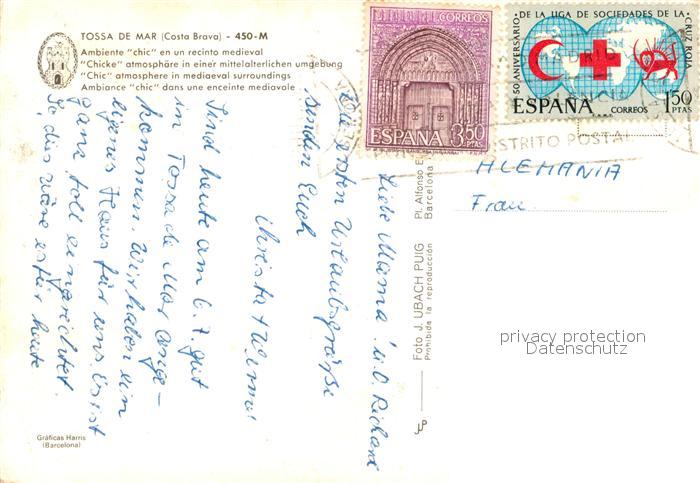 TOSSA DE MAR (Costa Brava) - 450-M
Ambiente "chic" en un recinto medieval
"Chicke" atmosphäre in einer mittelalterlichen umgebung
"Chic" atmosphere in mediaeval surroundings
Ambiance "chic" dans une enceinte mediovale
CORREOS
ESPAÑA 3,50 PTAS
50 ANIVERSARIO DE LA LIGA DE SOCIEDADES DE LA CRUZ ROJA
ESPAÑA CORREOS 1,50 PTAS
MADRID
DISTRITO POSTAL
ALEMANIA
Frau
Liebe Mama! u. O. Richard
Die ersten Urlaubsgrüße
senden Euch
Christa + Werner
Sind heute am 6.7. gut
in Tossa de Mar ange-
kommen. Wir haben ein
eigenes Haus für uns. Es ist
ganz toll eingerichtet.
So, dies wäre es für heute
Pl. Alfonso
Barcelona
Foto J. UBACH PUIG
Prohibida la reproducción
Gráficas Harris
(Barcelona)
privacy protection
Datenschutz